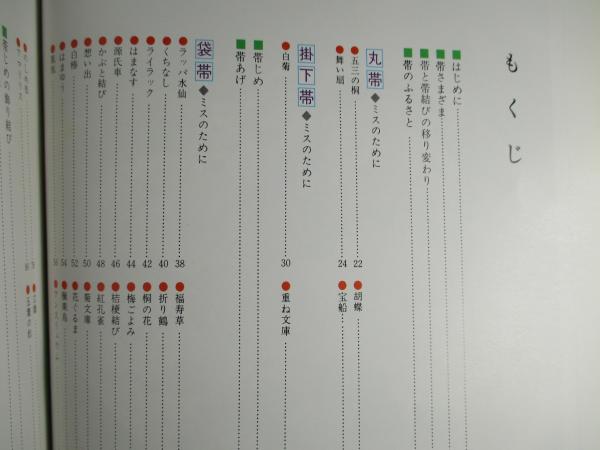 もくじ
はじめに
帯さまざま
帯と帯結びの移り変わり
帯のふるさと
丸帯◆ミスのために
●五三の桐 22 ●胡蝶
●舞い扇 24 ●宝船
掛下帯◆ミスのために
●白菊 30 ●重ね文庫
帯じめ
帯あげ
袋帯◆ミスのために
●ラッパ水仙 38 ●福寿草
●くちなし 40 ●折り鶴
●ライラック 42 ●桐の花
●はまなす 44 ●梅ごよみ
●源氏車 46 ●桔梗結び
●かぶと結び 48 ●紅孔雀
●想い出 50 ●菊文庫
●白椿 52 ●花ぐるま
●はまゆう 54 ●極楽鳥
56
帯じめの飾り結び